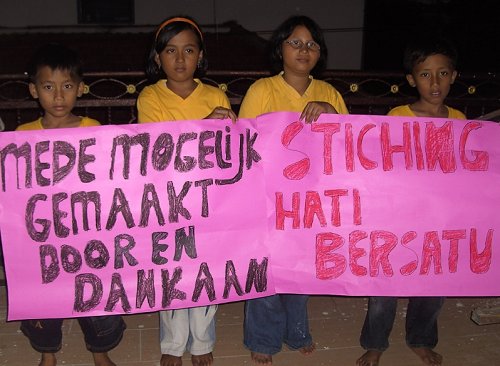 MEDE MOGELIJK
GEMAAKT
DOOR EN
DANKAAN
STICHING
HATI
BERSATU